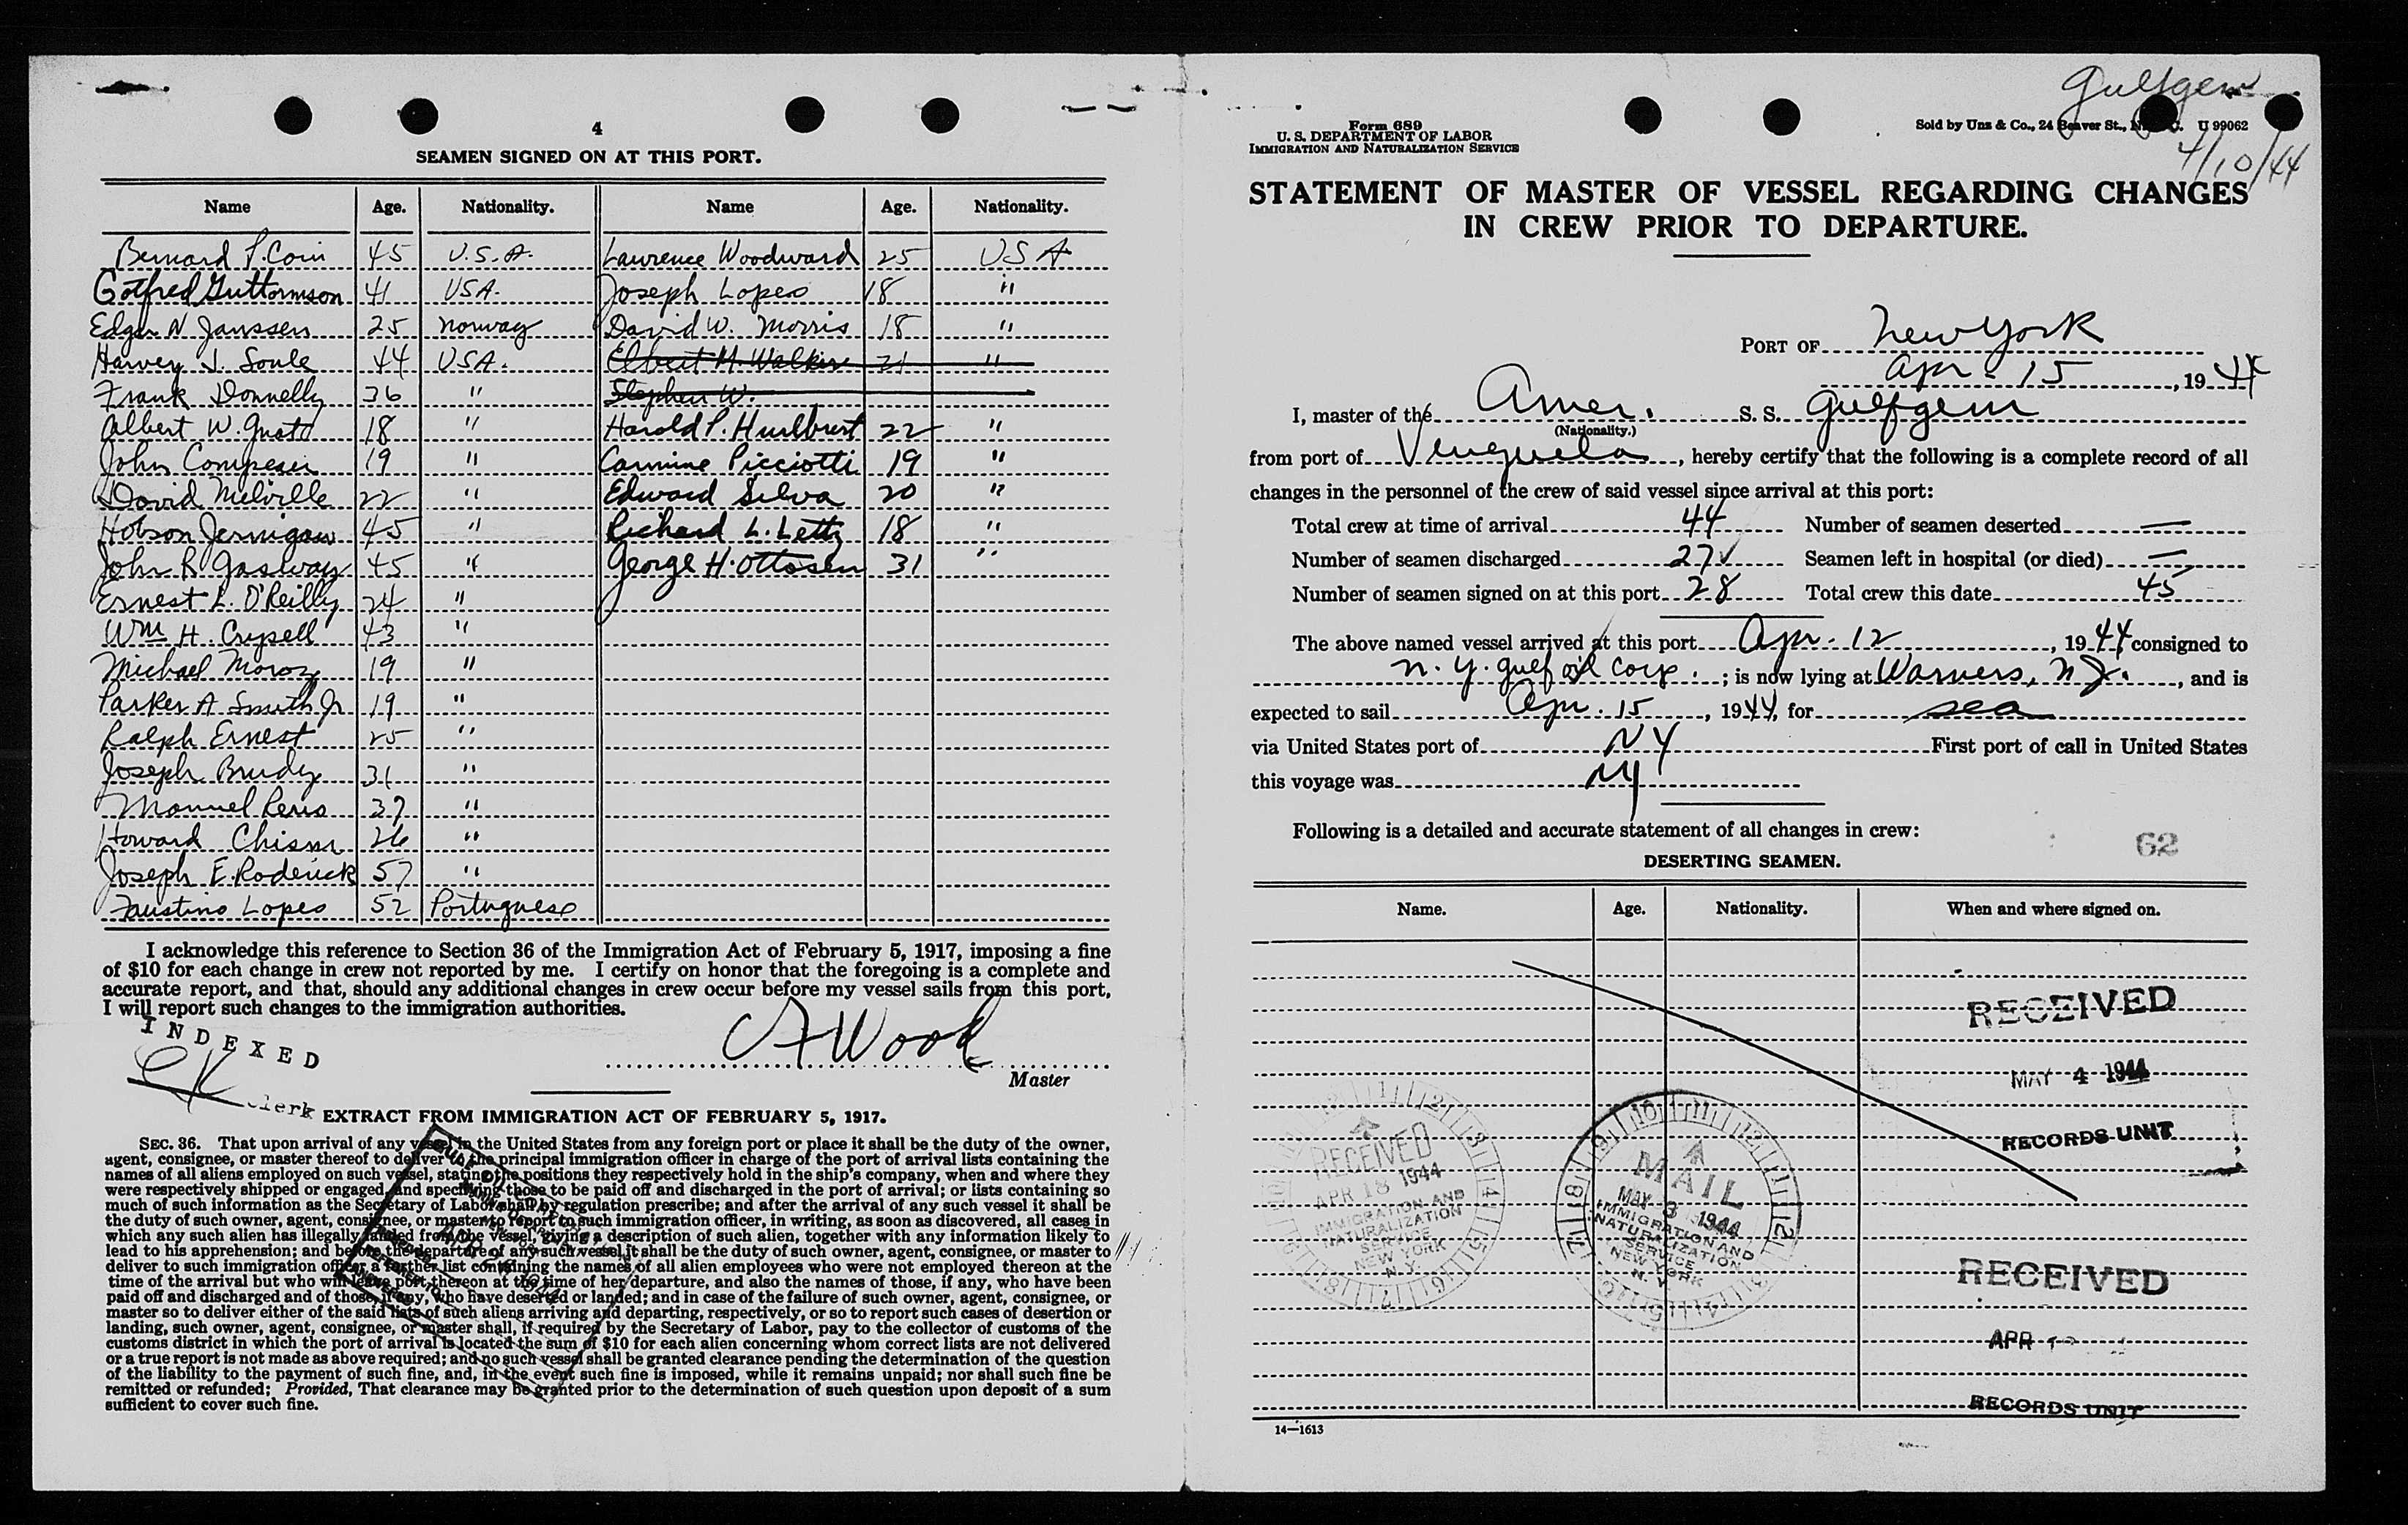 4
SEAMEN SIGNED ON AT THIS PORT.
Name Age. Nationality. Name Age. Nationality.
Bernard P. Coin 45 U.S.A. Lawrence Woodward 25 USA
Gotfred Guttormson 41 USA. Joseph Lopes 18 "
Edgar N Janssen 25 Norway David W. Morris 18 "
Harvey J. Soule 44 USA. Elbert H. Walker 21 "
Frank Donnelly 36 " Stephen W.
Albert W. 18 " Harold P. Hurlburt 22 "
John 19 " Carmine Picciotti 19 "
David Melville 22 " Edward Silva 20 "
Hobson Jernigan 45 " Richard L. Lettz 18 "
John R. Gasway 45 " George H. Ottosen 31 "
Ernest L. O'Reilly 24 "
Wm H. Crysell 43 "
Michael Moroz 19 "
Parker A Smith Jr 19 "
Ralph Ernest 25 "
Joseph Brudz 31 "
Manuel Reris 37 "
Howard Chism 26 "
Joseph E. Roderick 57 "
Faustino Lopes 52 Portuguese
I acknowledge this reference to Section 36 of the Immigration Act of February 5, 1917, imposing a fine
of $10 for each change in crew not reported by me. I certify on honor that the foregoing is a complete and
accurate report, and that, should any additional changes in crew occur before my vessel sails from this port,
I will report such changes to the immigration authorities.
INDEXED
CK
Clerk
Wood
Master
EXTRACT FROM IMMIGRATION ACT OF FEBRUARY 5, 1917.
SEC. 36. That upon arrival of any vessel in the United States from any foreign port or place it shall be the duty of the owner,
agent, consignee, or master thereof to deliver to the principal immigration officer in charge of the port of arrival lists containing the
names of all aliens employed on such vessel, stating the positions they respectively hold in the ship's company, when and where they
were respectively shipped or engaged, and specifying those to be paid off and discharged in the port of arrival; or lists containing so
much of such information as the Secretary of Labor shall by regulation prescribe; and after the arrival of any such vessel it shall be
the duty of such owner, agent, consignee, or master to report to such immigration officer, in writing, as soon as discovered, all cases in
which any such alien has illegally landed from the vessel, giving a description of such alien, together with any information likely to
lead to his apprehension; and before the departure of any such vessel it shall be the duty of such owner, agent, consignee, or master to
deliver to such immigration officer a further list containing the names of all alien employees who were not employed thereon at the
time of the arrival but who will leave port thereon at the time of her departure, and also the names of those, if any, who have been
paid off and discharged and of those, if any, who have deserted or landed; and in case of the failure of such owner, agent, consignee, or
master so to deliver either of the said lists of such aliens arriving and departing, respectively, or so to report such cases of desertion or
landing, such owner, agent, consignee, or master shall, if required by the Secretary of Labor, pay to the collector of customs of the
customs district in which the port of arrival is located the sum of $10 for each alien concerning whom correct lists are not delivered
or a true report is not made as above required; and no such vessel shall be granted clearance pending the determination of the question
of the liability to the payment of such fine, and, in the event such fine is imposed, while it remains unpaid; nor shall such fine be
remitted or refunded; Provided, That clearance may be granted prior to the determination of such question upon deposit of a sum
sufficient to cover such fine.
Gulfgem
4/10/44
Form 689
U. S. DEPARTMENT OF LABOR
IMMIGRATION AND NATURALIZATION SERVICE
Sold by Unz & Co., 24 Beaver St., N. Y. C. U 99062
STATEMENT OF MASTER OF VESSEL REGARDING CHANGES
IN CREW PRIOR TO DEPARTURE.
PORT OF New York
Apr - 15, 1944
I, master of the Amer. S. S. Gulfgem
(Nationality.)
from port of Venezuela, hereby certify that the following is a complete record of all
changes in the personnel of the crew of said vessel since arrival at this port:
Total crew at time of arrival 44 Number of seamen deserted —
Number of seamen discharged 27 Seamen left in hospital (or died) —
Number of seamen signed on at this port 28 Total crew this date 45
The above named vessel arrived at this port Apr - 12, 1944 consigned to
N. Y. Gulf Oil Corp.; is now lying at Warners, N J., and is
expected to sail Apr. 15, 1944, for sea
via United States port of NY First port of call in United States
this voyage was NY
Following is a detailed and accurate statement of all changes in crew:
62
DESERTING SEAMEN.
Name. Age. Nationality. When and where signed on.
RECEIVED
MAY 4 1944
RECORDS UNIT
RECEIVED
APR 18 1944
IMMIGRATION AND
NATURALIZATION
SERVICE
NEW YORK
N. Y.
MAIL
MAY 3 1944
IMMIGRATION AND
NATURALIZATION
SERVICE
NEW YORK
N. Y.
RECEIVED
APR
RECORDS UNIT
14—1613